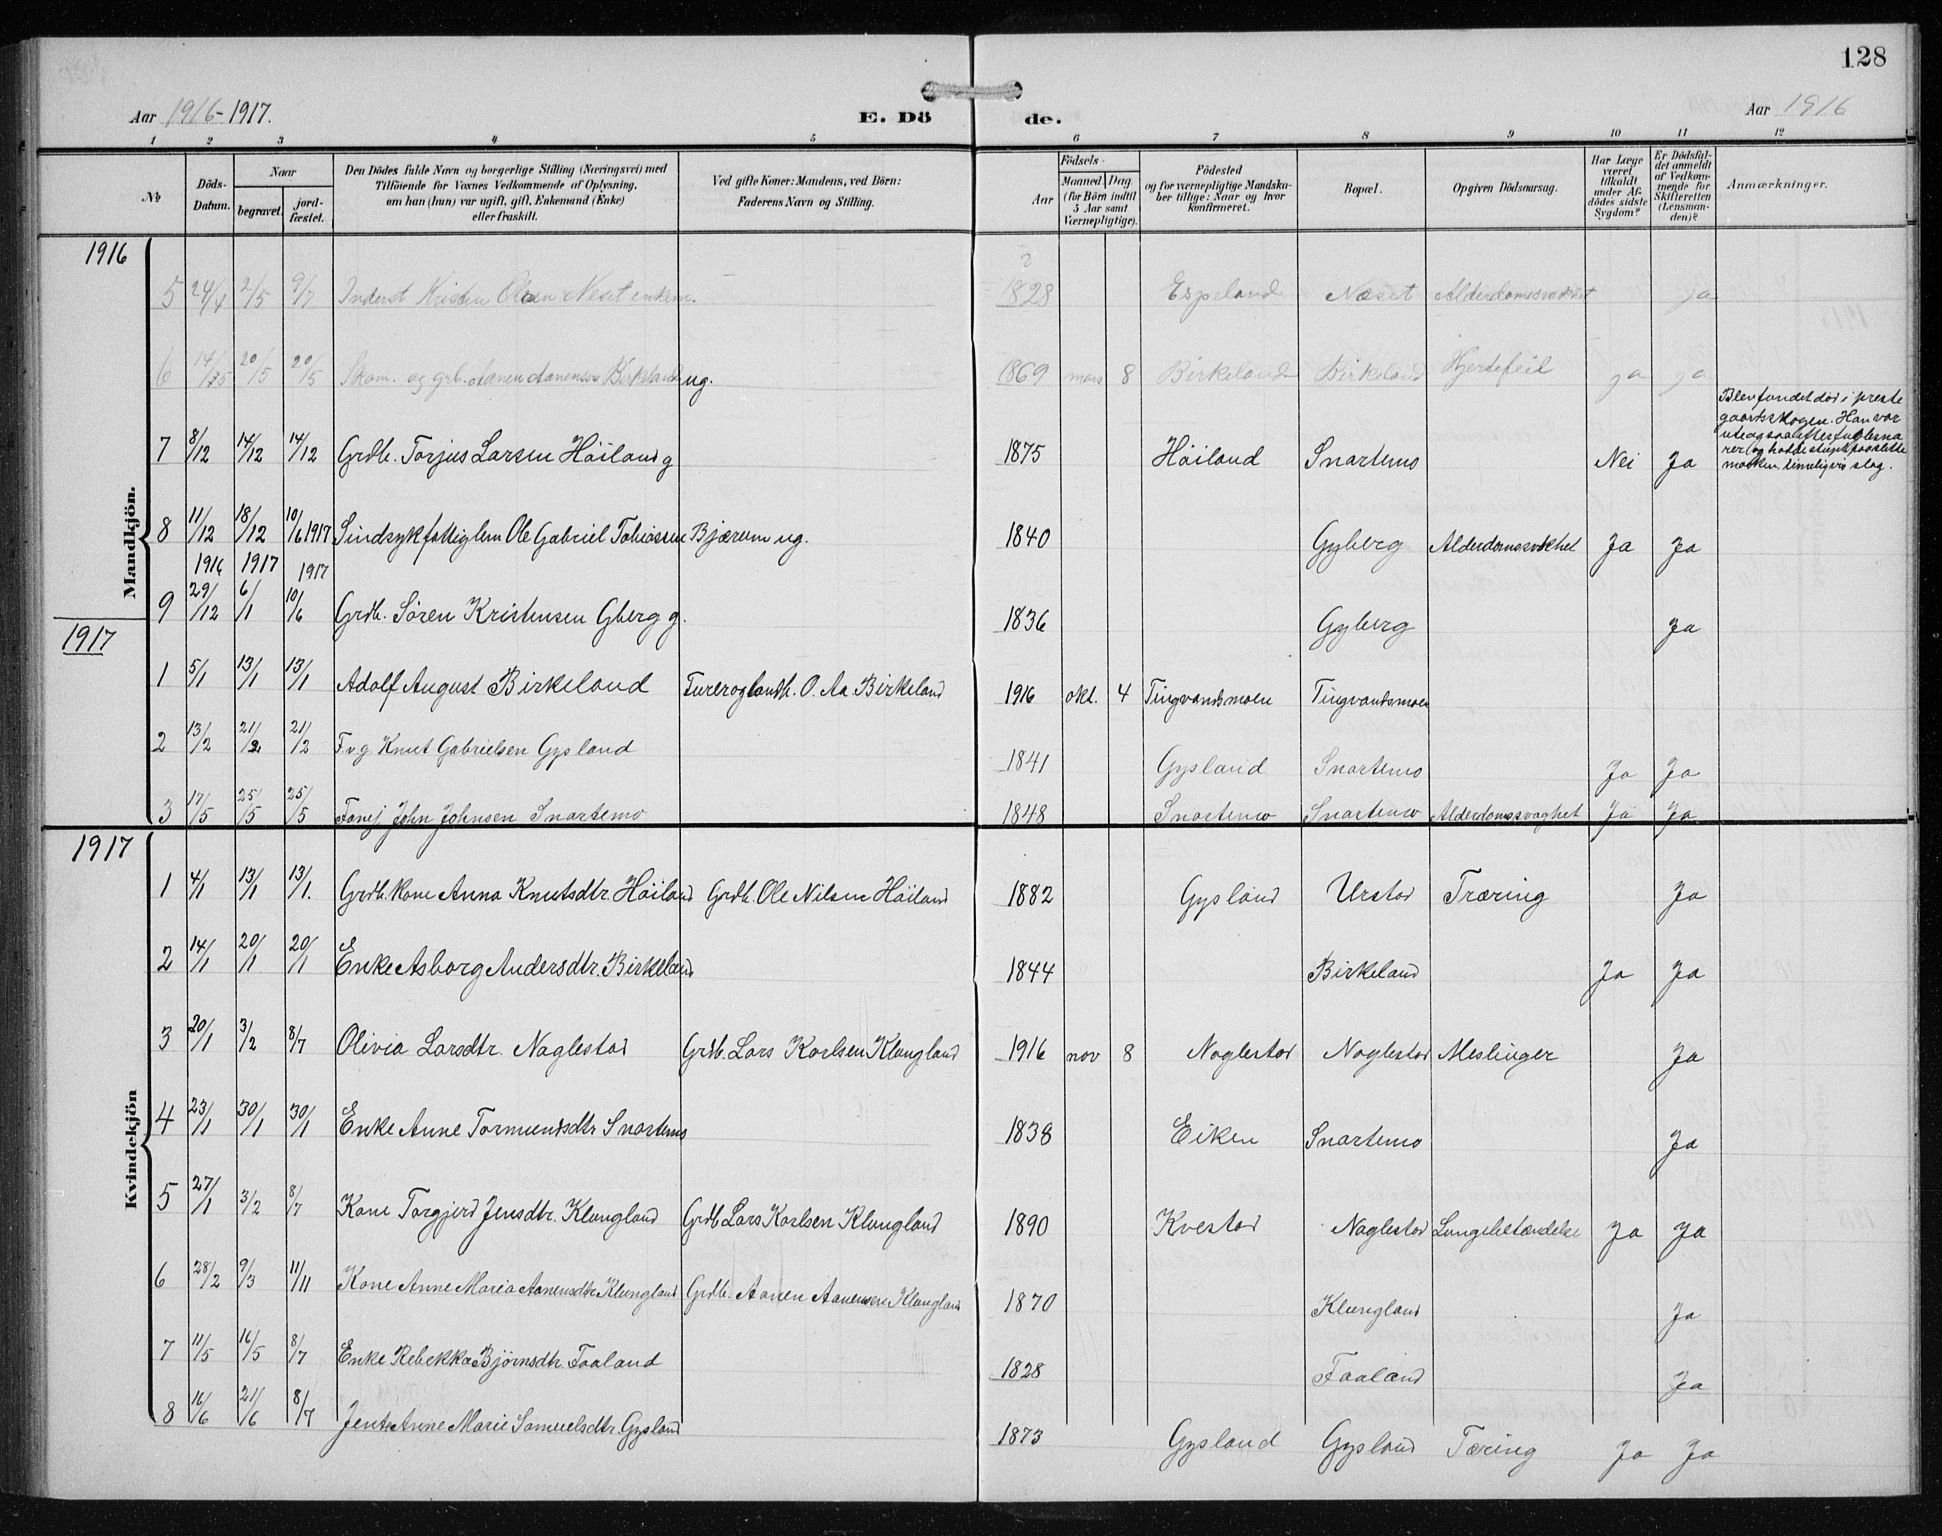 128
Aar 1916-1917. E. Dö de. Aar 1916
1 2 3 4 5 6 7 8 9 10 11 12
№ Döds-Datum. Naar begravet. jordfæstet. Den Dödes fulde Navn og borgerlige Stilling (Næringsvei) med Tilföiende for Voxnes Vedkommende af Oplysning, om han (hun) var ugift, gift, Enkemand (Enke) eller fraskilt. Ved gifte Koner: Mandens, ved Börn: Faderens Navn og Stilling. Födsels- Aar Maaned Dag (for Börn indtil 5 Aar samt Værnepligtige). Födested og for værnepligtige Mandskaber tillige: Naar og hvor Konfirmeret. Bopæl. Opgiven Dödsaarsag. Har Læge været tilkaldt under Afdödes sidste Sygdom? Er Dödsfaldet anmeldt af Vedkommende for Skifteretten (Lensmanden)? Anmærkninger.
1916
Mandkjön.
5 24/4 2/5 9/7 Inderst Kristen Olsen Neset enkem. 1828 Espeland Næset Alderdomssvakhet ja
6 14/5 20/5 20/5 Skom. og grb. Aanen Aanensen Birkeland ug. 1869 mars 8 Birkeland Birkeland Hjertefeil ja ja
7 8/12 14/12 14/12 Grdb. Torjus Larsen Höiland g 1875 Höiland Snartemo Nei Ja Blev fundet död i prestegaardsskogen. Han var
8 11/12 18/12 10/6 1917 Sindsyk fattiglem Ole Gabriel Tobiassen Bjærum ug. 1840 Gyberg Alderdomssvakhet Ja Ja
1916 1917 1917
9 29/12 6/1 10/6 Grdb. Sören Kristensen Gberg g. 1836 Gyberg Ja
1917
1 5/1 13/1 13/1 Adolf August Birkeland O. Aa. Birkeland 1916 okt. 4 Tingvandsmoen Tingvandsmoen
2 13/2 21/2 21/2 Fvg Knut Gabrielsen Gysland 1841 Gysland Snartemo Ja Ja
3 17/5 25/5 25/5 John Johnsen Snartemo 1848 Snartemo Snartemo Alderdomssvaghet Ja Ja
1917
Kvindekjön
1 4/1 13/1 13/1. Grdb. Kone Anna Knutsdtr. Höiland Grdb. Ole Nilsen Höiland 1882 Gysland Urstad Træring Ja
2 14/1 20/1 20/1 Enke Asborg Andersdtr. Birkeland 1844 Birkeland Ja Ja
3 20/1 3/2 8/7 Olivia Larsdtr. Naglestad Grdb. Lars Karlsen Klungland 1916 nov 8 Naglestad Naglestad Meslinger Ja
4 23/1 30/1 30/1 Enke Anne Tormundsdtr Snartemo 1838 Eiken Snartemo Ja
5 27/1 3/2 8/7 Kone Torgjerd Jensdtr. Klungland Grdb Lars Karlsen Klungland 1890 Kvestad Naglestad Lungebetændelse Ja Ja
6 28/2 9/3 11/11 Kone Anne Maria Aanensdtr Klungland Grdb. Aanen Aanensen Klungland 1870 Klungland Ja
7 11/5 16/5 8/7 Enke Rebekka Björnsdtr. Faaland 1828 Faaland Ja
8 16/6 21/6 8/7 Jente Anne Marie Samuelsdtr. Gysland 1873 Gysland Gysland Tæring Ja Ja